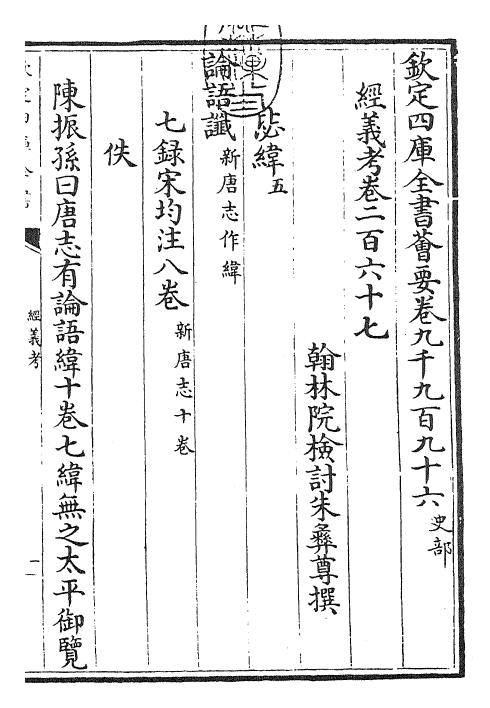 欽定四庫全書薈要卷九千九百九十六 史部
經義考卷二百六十七
翰林院檢討朱彝尊撰
毖緯五
論語讖 新唐志作緯
七録宋均注八卷 新唐志十卷
佚
陳振孫曰唐志有論語緯十卷七緯無之太平御覽
經義考
一